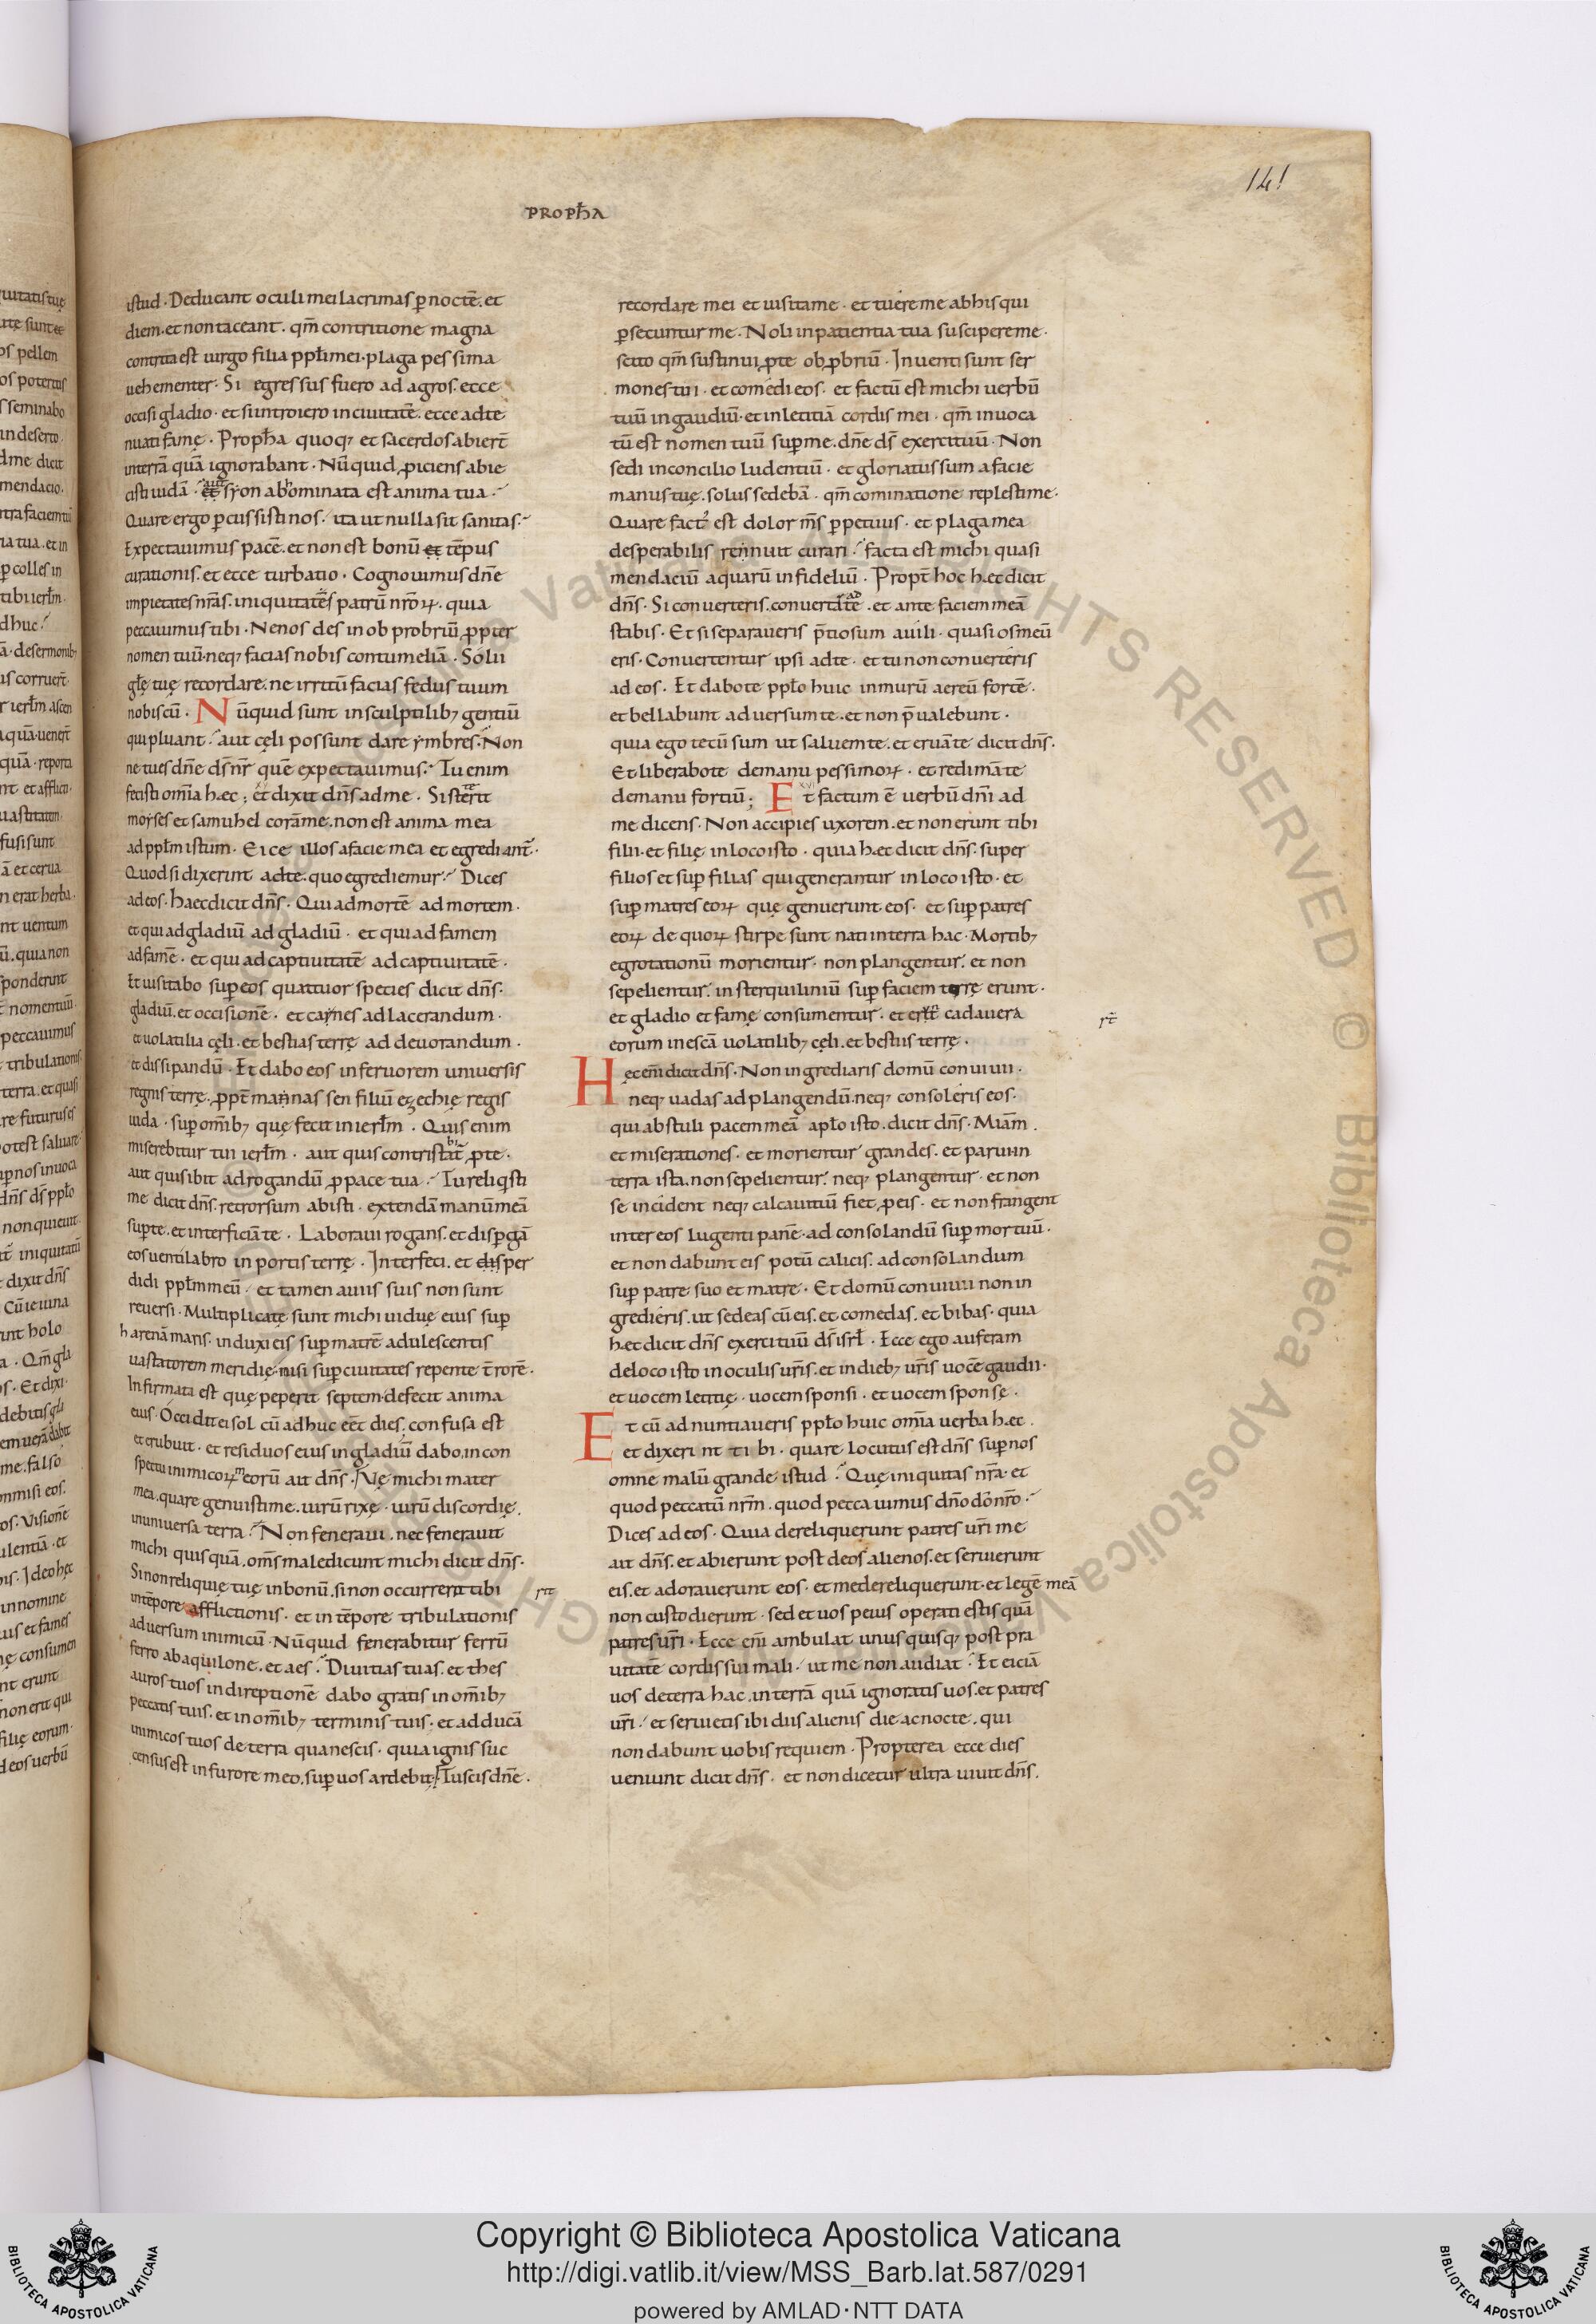 141
PROPHA
istud. Deducant oculi mei lacrimas p̄ noctē. et
diem. et non taceant. qm̄ contritione magna
contrita est uirgo filia ppłi mei. plaga pessima
uehementer. Si egressus fuero ad agros. ecce
occisi gladio. et si introiero in ciuitatē. ecce adte
nuati famę. Propħa quoq; et sacerdos abiert̄
interrā quā ignorabant. Nūquid ꝓiciens abie
cisti iudā. aut syon abhominata est anima tua.
Quare ergo p̄cussisti nos. ita ut nulla sit sanitas.
Expectauimus pacē. et non est bonū et tēpus
curationis. et ecce turbatio. Cognouimus dn̄e
impietates nr̄as. iniquitatēs patrū nr̄oꝝ. quia
peccauimus tibi. Ne nos des in obprobriū ꝓpter
nomen tuū. neq; facias nobis contumeliā. Solii
głę tuę recordare. ne irritū facias fedus tuum
nobiscū. Nūquid sunt in sculptilib; gentiū
qui pluant. aut cęli possunt dare ymbres. Non
ne tu es dn̄e ds̄ nr̄ quē expectauimus. Tu enim
fecisti om̄ia hæc; et dixit dn̄s ad me. Si steterit
moyses et samuhel corā me. non est anima mea
ad ppłm istum. Eice illos a facie mea et egrediant̄.
Quod si dixerint ad te. quo egrediemur. Dices
ad eos. hæc dicit dn̄s. Qui ad mortē ad mortem.
et qui ad gladiū ad gladiū. et qui ad famem
ad famē. et qui ad captiuitatē ad captiuitatē.
Et uisitabo sup̄ eos quattuor species dicit dn̄s.
gladiū. et occisionē. et canes ad lacerandum.
et uolatilia cęli. et bestias terrę ad deuorandum.
et dissipandū. Et dabo eos in feruorem uniuersis
regnis terrę. ꝓpt̄ mannasen filiū ezechię regis
iuda. sup̄ om̄ib; quę fecit in ierłm. Quis enim
miserebitur tui ierłm. aut quis contristabit̄ ꝓ te.
aut quis ibit ad rogandū ꝓ pace tua. Tu reliqisti
me dicit dn̄s. retrorsum abisti. extendā manū meā
sup̄ te. et interficiā te. Laboraui rogans. et disp̄gā
eos uentilabro in portis terrę. Interfeci. et disper
didi ppłm meū. et tamen a uiis suis non sunt
reuersi. Multiplicatę sunt michi uiduę eius sup̄
harenā maris. induxi eis sup̄ matrē adulescentis
uastatorem meridię. misi sup̄ ciuitates repente t̄rorē.
Infirmata est quę peperit septem. defecit anima
eius. Occidit ei sol cū adhuc eēt dies. confusa est
et erubuit. et residuos eius in gladiū dabo. in con
spectu inimicoꝝ eorū ait dn̄s. Vę michi mater
mea. quare genuisti me. uirū rixę. uirū discordię.
in uniuersa terra. Non feneraui. nec fenerauit
michi quisquā. om̄s maledicunt michi dicit dn̄s.
Si non reliquię tuę in bonū. si non occurrerit tibi
in tēpore afflictionis. et in tēpore tribulationis
aduersum inimicū. Nūquid fenerabitur ferrū
ferro ab aquilone. et aes. Diuitias tuas. et thes
auros tuos in direptionē dabo gratis in om̄ib;
peccatis tuis. et in om̄ib; terminis tuis. et adducā
inimicos tuos de terra qua nescis. quia ignis suc
census est in furore meo. sup̄ uos ardebit. Tu scis dn̄e.
recordare mei et uisita me. et tuere me ab his qui
p̄secuntur me. Noli in patientia tua suscipere me.
scito qm̄ sustinui ꝓ te obꝓbriū. Inuenti sunt ser
mones tui. et comedi eos. et factū est michi uerbū
tuū in gaudiū. et in letitiā cordis mei. qm̄ inuoca
tū est nomen tuū sup̄ me. dn̄e ds̄ exercituū. Non
sedi in concilio ludentiū. et gloriatus sum a facie
manus tuę. solus sedebā. qm̄ cominatione replesti me.
Quare fact᾽ est dolor ms̄ p̄petuus. et plaga mea
desperabilis rennuit curari. facta est michi quasi
mendaciū aquarū infideliū. Propt̄ hoc hæc dicit
dn̄s. Si conuerteris. conuertā te. et ante faciem meā
stabis. Et si separaueris p̄tiosum a uili. quasi os meū
eris. Conuertentur ipsi ad te. et tu non conuerteris
ad eos. Et dabo te ppło huic in murū aereū fortē.
et bellabunt aduersum te. et non p̄ualebunt.
quia ego tecū sum ut saluem te. et eruā te dicit dn̄s.
Et liberabo te de manu pessimoꝝ. et redimā te
de manu fortiū; Et factum ē uerbū dn̄i ad
me dicens. Non accipies uxorem. et non erunt tibi
filii. et filię in loco isto. quia hæc dicit dn̄s. super
filios et sup̄ filias qui generantur in loco isto. et
sup̄ matres eoꝝ quę genuerunt eos. et sup̄ patres
eoꝝ de quoꝝ stirpe sunt nati in terra hac. Mortib;
egrotationū morientur. non plangentur. et non
sepelientur. in sterquiliniū sup̄ faciem terrę erunt.
et gladio et famę consumentur. et erit cadauera
rt̄
eorum in escā uolatilib; cęli. et bestiis terrę.
Hęc eni dicit dn̄s. Non ingrediaris domū conuiuii.
neq; uadas ad plangendū. neq; consoleris eos.
qui abstuli pacem meā a pło isto. dicit dn̄s. Miām.
et miserationes. et morientur grandes. et parui in
terra ista. non sepelientur. neq; plangentur. et non
se incident neq; calcauitiū fiet ꝓ eis. et non frangent
inter eos lugenti panē. ad consolandū sup̄ mortuū.
et non dabunt eis potū calicis. ad consolandum
sup̄ patre suo et matre. Et domū conuiuii non in
gredieris. ut sedeas cū eis. et comedas. et bibas. quia
hæc dicit dn̄s exercituū ds̄ isrł. Ecce ego auferam
de loco isto in oculis ur̄is. et in dieb; ur̄is uocē gaudii.
et uocem letitię. uocem sponsi. et uocem sponsę.
Et cū adnuntiaueris ppło huic om̄ia uerba hæc.
et dixerint tibi. quare locutus est dn̄s sup̄ nos
omne malū grande istud. Quę iniquitas nr̄a. et
quod peccatū nr̄m. quod peccauimus dn̄o dō nr̄o.
Dices ad eos. Quia dereliquerunt patres ur̄i me
ait dn̄s. et abierunt post deos alienos. et seruierunt
eis. et adorauerunt eos. et me dereliquerunt. et legē meā
non custodierunt. sed et uos peius operati estis quā
patres ur̄i. Ecce eni ambulat unusquisq; post pra
uitatē cordis sui mali. ut me non audiat. Et eiciā
uos de terra hac. in terrā quā ignoratis uos. et patres
ur̄i. et seruietis ibi diis alienis die ac nocte. qui
non dabunt uobis requiem. Propterea ecce dies
ueniunt dicit dn̄s. et non dicetur ultra uiuit dn̄s.
Copyright © Biblioteca Apostolica Vaticana
http://digi.vatlib.it/view/MSS_Barb.lat.587/0291
powered by AMLAD·NTT DATA
BIBLIOTECA APOSTOLICA VATICANA
BIBLIOTECA APOSTOLICA VATICANA